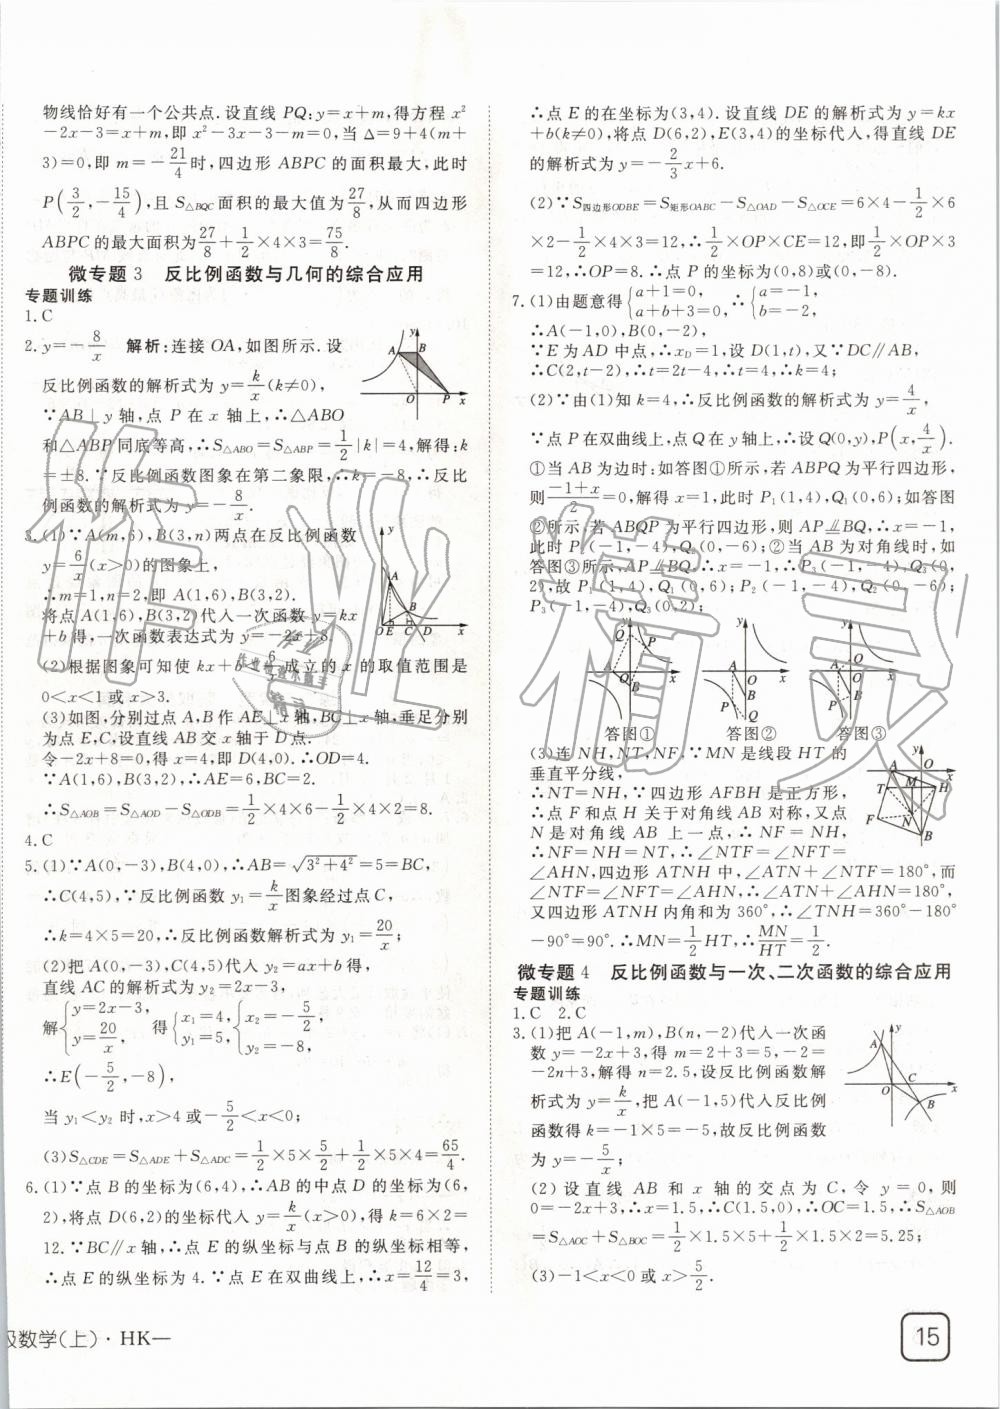 物线恰好有一个公共点.设直线 PQ:y=x+m,得方程 x²
-2x-3=x+m,即 x²-3x-3-m=0,当 Δ=9+4(m+
3)=0,即 m=-21/4时,四边形 ABPC 的面积最大,此时
P(3/2,-15/4),且 S△BQC面积的最大值为27/8,从而四边形
ABPC 的最大面积为27/8+1/2×4×3=75/8.
微专题 3 反比例函数与几何的综合应用
专题训练
1.C
2.y=-8/x 解析:连接 OA,如图所示.设
反比例函数的解析式为 y=k/x(k≠0),
∵AB⊥y 轴,点 P 在 x 轴上,∴△ABO
和△ABP 同底等高,∴S△ABO=S△ABP=1/2|k|=4,解得:k
=±8.∵反比例函数图象在第二象限,∴k=-8,∴反比
例函数的解析式为 y=-8/x.
3.(1)∵A(m,6),B(3,n)两点在反比例函数
y=6/x(x>0)的图象上,
∴m=1,n=2,即 A(1,6),B(3,2).
将点 A(1,6),B(3,2)代入一次函数 y=kx
+b得,一次函数表达式为 y=-2x+8.
(2)根据图象可知使 kx+b<6/x成立的 x 的取值范围是
0<x<1 或 x>3.
(3)如图,分别过点 A,B 作 AE⊥x 轴,BC⊥x 轴,垂足分别
为点 E,C,设直线 AB 交 x 轴于 D 点.
令-2x+8=0,得 x=4,即 D(4,0).∴OD=4.
∵A(1,6),B(3,2),∴AE=6,BC=2.
∴S△AOB=S△AOD-S△ODB=1/2×4×6-1/2×4×2=8.
4.C
5.(1)∵A(0,-3),B(4,0),∴AB=√3²+4²=5=BC,
∴C(4,5),∵反比例函数 y₁=k/x图象经过点 C,
∴k=4×5=20,∴反比例函数解析式为 y₁=20/x;
(2)把 A(0,-3),C(4,5)代入 y₂=ax+b得,
直线 AC 的解析式为 y₂=2x-3,
解{y=2x-3, y=20/x, 得{x₁=4, y₁=5, {x₂=-5/2, y₂=-8,
∴E(-5/2,-8),
当 y₁<y₂ 时,x>4 或-5/2<x<0;
(3)S△CDE=S△ADE+S△ADC=1/2×5×5/2+1/2×5×4=65/4.
6.(1)∵点 B 的坐标为(6,4),∴AB 的中点 D 的坐标为(6,
2),将点 D(6,2)的坐标代入 y=k/x(x>0),得 k=6×2=
12.∵BC∥x 轴,∴点 E 的纵坐标与点 B 的纵坐标相等,
∴点 E 的纵坐标为 4.∵点 E 在双曲线上,∴x=12/4=3,
∴点 E 的在坐标为(3,4).设直线 DE 的解析式为 y=kx
+b(k≠0),将点 D(6,2),E(3,4)的坐标代入,得直线 DE
的解析式为 y=-2/3x+6.
(2)∵S四边形ODBE=S矩形OABC-S△OAD-S△OCE=6×4-1/2×6
×2-1/2×4×3=12,∴1/2×OP×CE=12,即1/2×OP×3
=12,∴OP=8.∴点 P 的坐标为(0,8)或(0,-8).
7.(1)由题意得{a+1=0, a+b+3=0, ∴{a=-1, b=-2,
∴A(-1,0),B(0,-2),
∵E 为 AD 中点,∴xD=1,设 D(1,t),又∵DC∥AB,
∴C(2,t-2),∴t=2t-4,∴t=4,∴k=4;
(2)∵由(1)知 k=4,∴反比例函数的解析式为 y=4/x,
∵点 P 在双曲线上,点 Q 在 y 轴上,∴设 Q(0,y),P(x,4/x).
①当 AB 为边时:如答图①所示,若 ABPQ 为平行四边形,
则-1+x/2=0,解得 x=1,此时 P₁(1,4),Q₁(0,6);如答图
②所示,若 ABQP 为平行四边形,则 AP⫽BQ,∴x=-1,
此时 P₂(-1,-4),Q₂(0,-6);②当 AB 为对角线时,如
答图③所示,AP⫽BQ,∴x=-1,∴P₃(-1,-4),Q₃(0,
2),故 P₁(1,4),Q₁(0,6);P₂(-1,-4),Q₂(0,-6);
P₃(-1,-4),Q₃(0,2);
答图① 答图② 答图③
(3)连 NH,NT,NF,∵MN 是线段 HT 的
垂直平分线,
∴NT=NH,∵四边形 AFBH 是正方形,
∴点 F 和点 H 关于对角线 AB 对称,又点
N 是对角线 AB 上一点,∴NF=NH,
∴NF=NH=NT,∴∠NTF=∠NFT=
∠AHN,四边形 ATNH 中,∠ATN+∠NTF=180°,而
∠NTF=∠NFT=∠AHN,∴∠ATN+∠AHN=180°,
又四边形 ATNH 内角和为 360°,∴∠TNH=360°-180°
-90°=90°.∴MN=1/2HT,∴MN/HT=1/2.
微专题 4 反比例函数与一次、二次函数的综合应用
专题训练
1.C 2.C
3.(1)把 A(-1,m),B(n,-2)代入一次函
数 y=-2x+3,得 m=2+3=5,-2=
-2n+3,解得 n=2.5,设反比例函数解
析式为 y=k/x,把 A(-1,5)代入反比例
函数得 k=-1×5=-5,故反比例函数
为 y=-5/x;
(2)设直线 AB 和 x 轴的交点为 C,令 y=0,则
0=-2x+3,∴x=1.5,∴C(1.5,0),∴OC=1.5,∴S△AOB
=S△AOC+S△BOC=1/2×1.5×5+1/2×1.5×2=5.25;
(3)-1<x<0 或 x>5/2.
级数学(上)·HK—
15